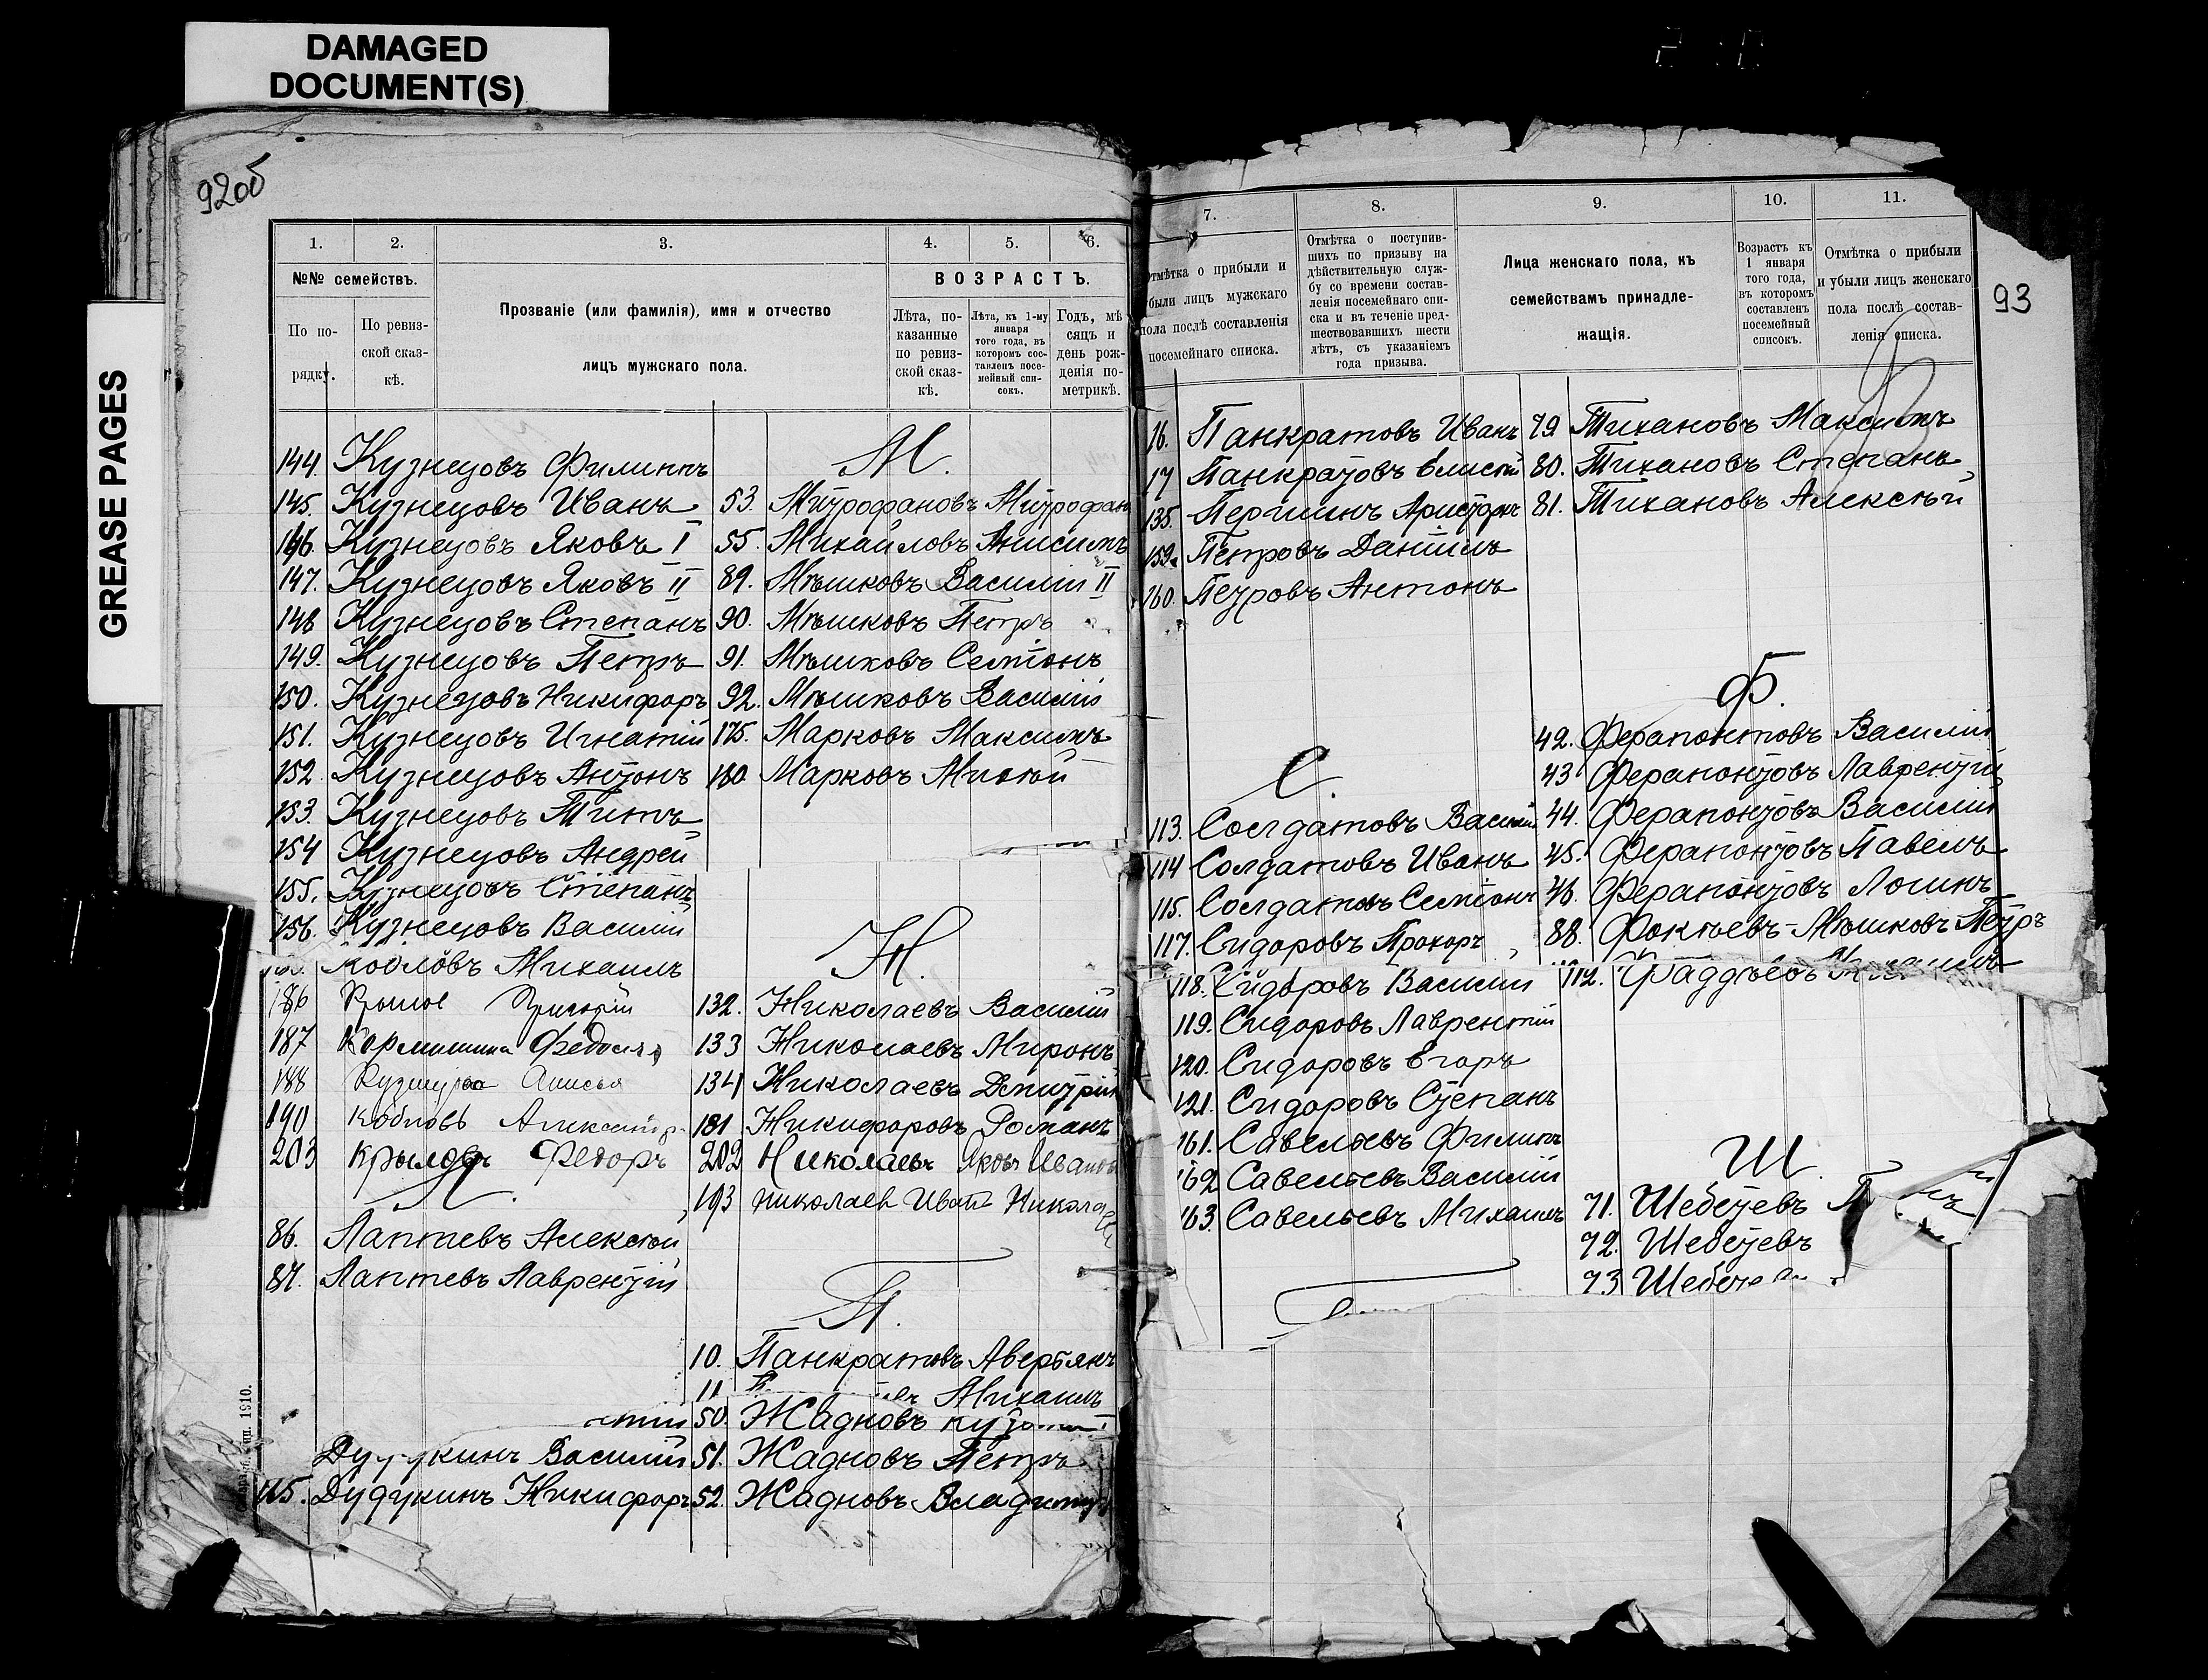 DAMAGED
DOCUMENT(S)
GREASE PAGES
92об
1.
2.
3.
4.
5.
6.
№№ семействъ.
По по-
рядку.
По ревиз-
ской сказ-
кѣ.
Прозваніе (или фамилія), имя и отчество
лицъ мужскаго пола.
ВОЗРАСТЪ.
Лѣта, по-
казанные
по ревиз-
ской сказ-
кѣ.
Лѣта, къ 1-му
января
того года, въ
которомъ сос-
тавленъ посе-
мейный спи-
сокъ.
Годъ, мѣ
сяцъ и
день рож-
денія по-
метрикѣ.
144. Кузнецовъ Филиппъ
145. Кузнецовъ Иванъ
146. Кузнецовъ Яковъ I
147. Кузнецовъ Яковъ II
148 Кузнецовъ Степанъ
149. Кузнецовъ Петръ
150. Кузнецовъ Никифоръ
151. Кузнецовъ Игнатій
152. Кузнецовъ Антонъ
153. Кузнецовъ Титъ
154 Кузнецовъ Андрей
155. Кузнецовъ Степанъ
156. Кузнецовъ Василій
Кобловъ Михаилъ
186 Григорій
187 Федосья
188 Анисья
190
203 Крыловъ Федоръ
Л.
86. Лаптевъ Алексѣй
87. Лаптевъ Лаврентій
Василій
165. Дудукинъ Никифоръ
М.
53. Митрофановъ Митрофан
55. Михайловъ Анисимъ
89. Мѣшковъ Василій II
90. Мѣшковъ Петръ
91. Мѣшковъ Семіонъ
92. Мѣшковъ Василій
175. Марковъ Максимъ
180. Марковъ
Н.
132. Николаевъ Василій
133 Николаевъ Миронъ
134 Николаевъ Дмитрій
181 Никифоровъ Романъ
202 Николаевъ Яковъ Иванов
193 Николаев Иванъ
П.
10. Панкратовъ Аверьянъ
11 Михаилъ
50. Жадновъ
51. Жадновъ Петръ
52. Жадновъ Владимір
7.
8.
9.
10.
11.
тмѣтка о прибыли и
были лицъ мужскаго
пола послѣ составленія
посемейнаго списка.
Отмѣтка о поступив-
шихъ по призыву на
дѣйствительную служ-
бу со времени состав-
ленія посемейнаго спи-
ска и въ теченіе пред-
шествовавшихъ шести
лѣтъ, съ указаніемъ
года призыва.
Лица женскаго пола, къ
семействамъ принадле-
жащія.
Возрастъ къ
1 января
того года,
въ которомъ
составленъ
посемейный
списокъ.
Отмѣтка о прибыли
и убыли лицъ женскаго
пола послѣ состав-
ленія списка.
93
16. Панкратовъ Иванъ
17 Панкратовъ Елисѣй
135. Першинъ Аристархъ
159. Петровъ Даніилъ
160. Петровъ Антонъ
С.
113. Солдатовъ Василій
114 Солдатовъ Иванъ
115. Солдатовъ Семіонъ
117. Сидоровъ Прохоръ
118. Сидоровъ Василій
119. Сидоровъ Лаврентій
120. Сидоровъ Егоръ
121. Сидоровъ Степанъ
161. Савельевъ Филипъ
162 Савельевъ Василій
163. Савельевъ Михаилъ
79 Тихановъ Максимъ
80. Тихановъ Степанъ
81. Тихановъ Алексѣй
Ф.
42. Ферапонтовъ Василій
43 Ферапонтовъ Лаврентій
44. Ферапонтовъ Василій
45. Ферапонтовъ Павелъ
46. Ферапонтовъ Логинъ
88. Фокѣевъ-Мѣшковъ Петръ
112. Фаддѣевъ
Ш.
71. Шебетевъ
72. Шебетевъ
73
1910.